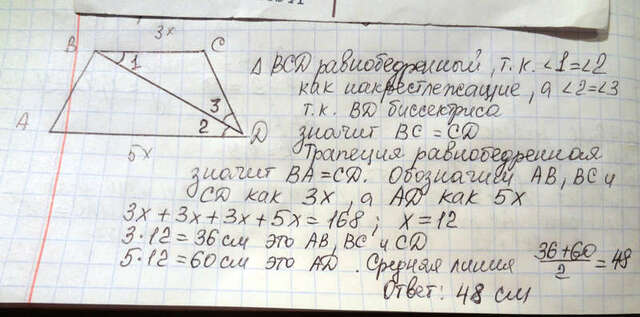 3x
B
C
1
3
2
A
D
5x
Δ BCD равнобедренный, т.к. ∠1=∠2
как накрестлежащие, а ∠2=∠3
т.к. BD биссектриса
значит BC = CD
Трапеция равнобедренная
значит BA = CD. Обозначим AB, BC и
CD как 3x, а AD как 5x
3x + 3x + 3x + 5x = 168; x = 12
3·12 = 36 см это AB, BC и CD
5·12 = 60 см это AD. Средняя линия (36+60)/2 = 48
Ответ: 48 см